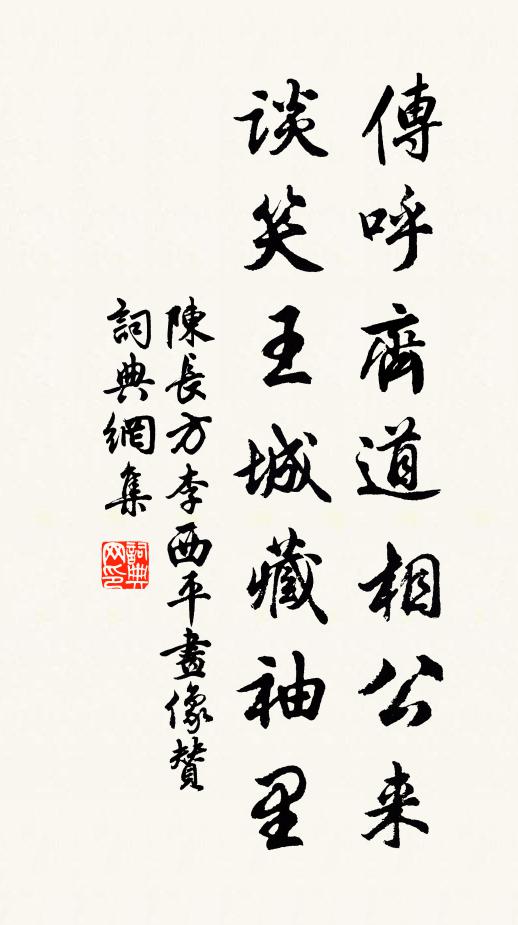 傳呼齊道相公来
谈笑王城藏袖里
陳長方李西平畫像贊
詞典網集
詞典网印